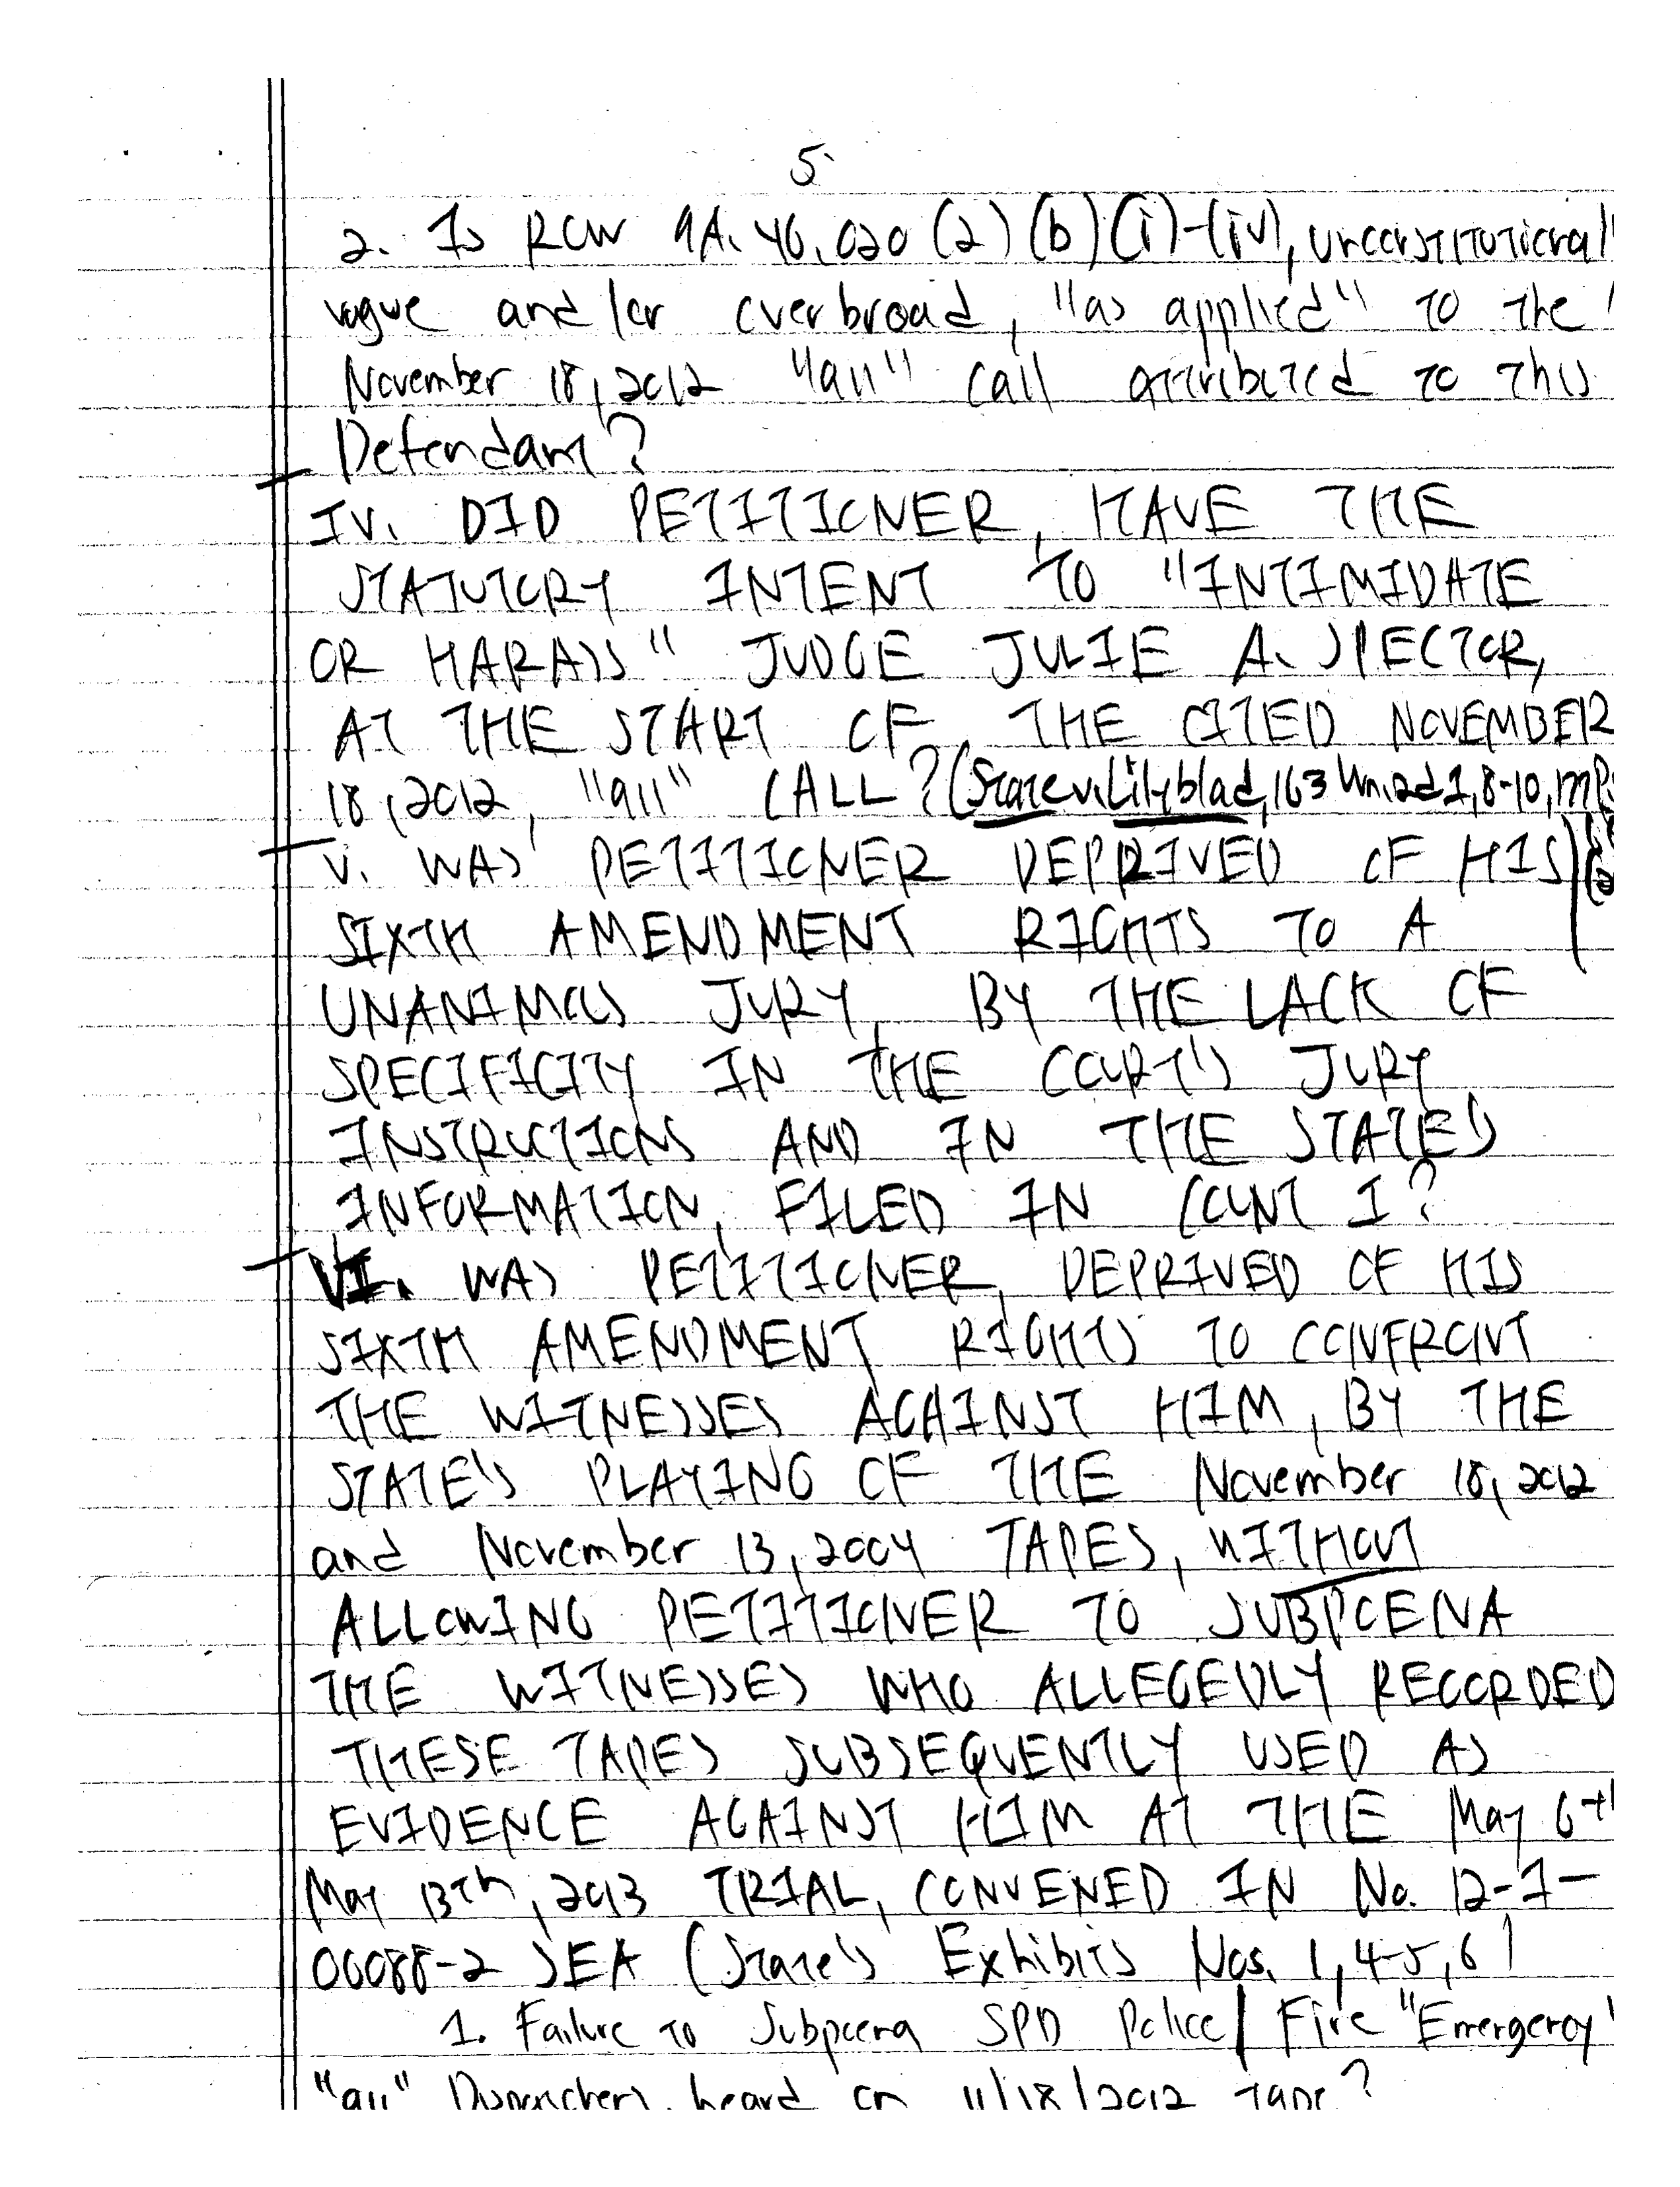 5
2. Is RCW 9A.46.020 (2)(b)(i)-(iv), unconstitutional
vague and/or overbroad, "as applied" to the
November 18, 2012 "911" call attributed to this
Defendant?
IV. DID PETITIONER, HAVE THE
STATUTORY INTENT TO "INTIMIDATE
OR HARASS" JUDGE JULIE A. SPECTOR,
AT THE START OF THE CITED NOVEMBER
18, 2012, "911" CALL? (State v. Lilyblad, 163 Wn.2d 1, 8-10,
V. WAS PETITIONER DEPRIVED OF HIS
SIXTH AMENDMENT RIGHTS TO A
UNANIMOUS JURY, BY THE LACK OF
SPECIFICITY IN THE COURT'S JURY
INSTRUCTIONS AND IN THE STATE'S
INFORMATION, FILED IN COUNT I?
VI. WAS PETITIONER, DEPRIVED OF HIS
SIXTH AMENDMENT RIGHTS TO CONFRONT
THE WITNESSES AGAINST HIM, BY THE
STATE'S PLAYING OF THE November 18, 2012
and November 13, 2004 TAPES, WITHOUT
ALLOWING PETITIONER TO SUBPOENA
THE WITNESSES WHO ALLEGEDLY RECORDED
THESE TAPES SUBSEQUENTLY USED AS
EVIDENCE AGAINST HIM AT THE May 6th
May 13th, 2013 TRIAL, CONVENED IN No. 12-1-
00088-2 SEA (State's Exhibits Nos. 1, 4-5, 6)
1. Failure to Subpoena SPD Police/Fire "Emergency"
"911" Dispatchers heard on 11/18/2012 tape?